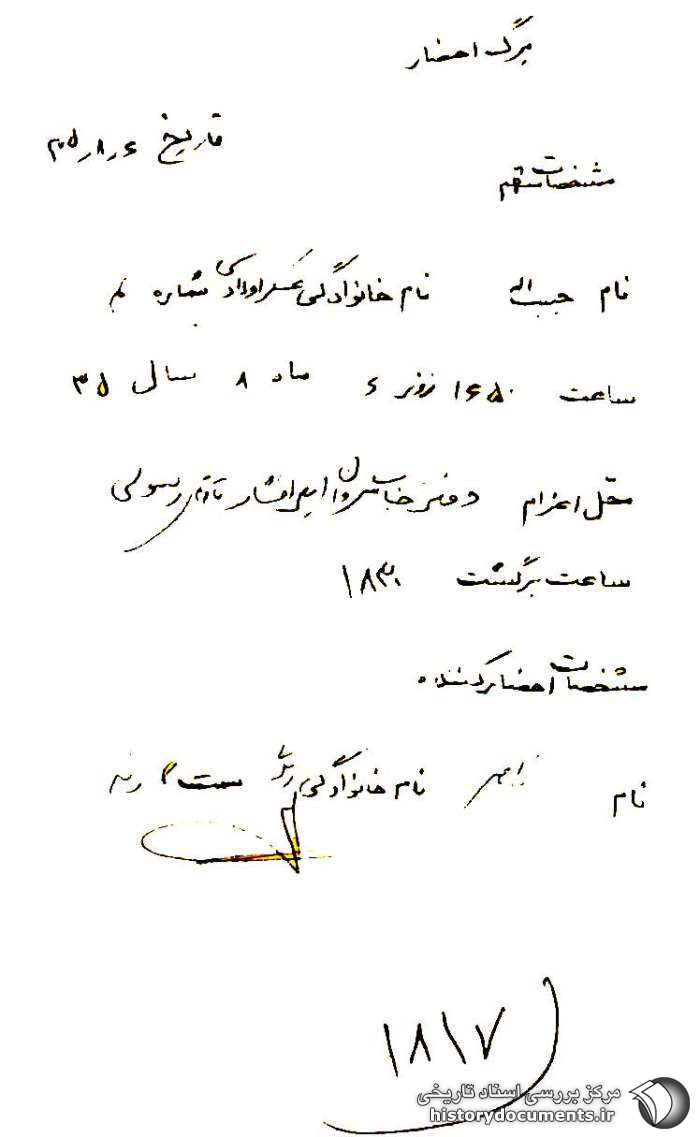 برگ احضار
تاریخ ۳۵ر۸ر۶
مشخصات متهم
نام حبیب اله نام خانوادگی عسگراولادی شماره
ساعت ۱۶۵۰ روز ۶ ماه ۸ سال ۳۵
محل اعزام دفتر جناب سروان افشار تا رسولی
ساعت برگشت ۱۸۳۰
مشخصات احضار کننده
نام نام خانوادگی سمت
۱۸۱۷
مرکز بررسی اسناد تاریخی
historydocuments.ir